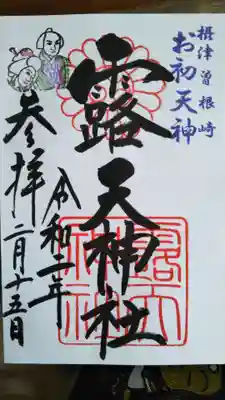 摂津曽根崎
お初天神
露天神社
令和二年
二月十五日
参拝
露天
神社